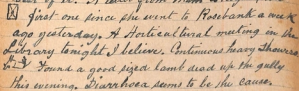 first one since she went to Rosebank a week
ago yesterday. A Horticultural meeting in the
Library tonight I believe. Continuous heavy showers
Found a good sized lamb dead up the gully
this evening. Diarrhoea seems to be the cause.